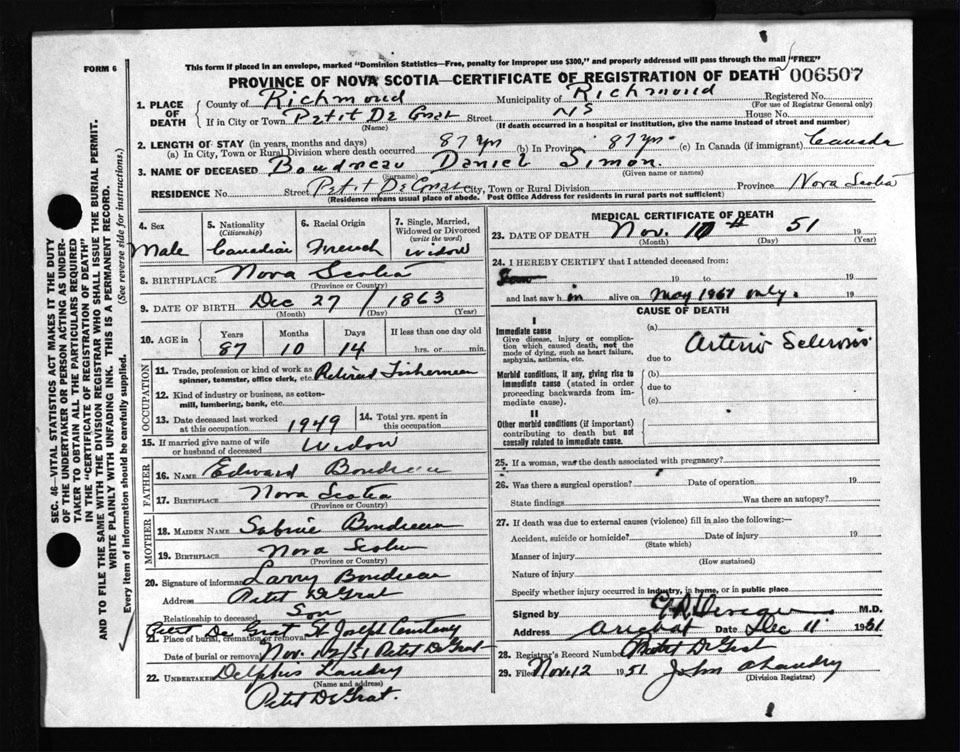 This form if placed in an envelope, marked "Dominion Statistics—Free, penalty for improper use $300," and properly addressed will pass through the mail "FREE"
FORM 6
PROVINCE OF NOVA SCOTIA—CERTIFICATE OF REGISTRATION OF DEATH 006507
1. PLACE OF DEATH
County of Richmond Municipality of Richmond Registered No.
(For use of Registrar General only)
If in City or Town Petit De Grat Street NS House No.
(Name) (If death occurred in a hospital or institution, give the name instead of street and number)
2. LENGTH OF STAY (in years, months and days)
(a) In City, Town or Rural Division where death occurred 87 yrs (b) In Province 87 yrs. (c) In Canada (if immigrant) Canada
3. NAME OF DECEASED Boudreau Daniel Simon.
(Surname) (Given name or names)
RESIDENCE No. Street Petit De Grat City, Town or Rural Division Province Nova Scotia
(Residence means usual place of abode. Post Office Address for residents in rural parts not sufficient)
4. Sex
Male
5. Nationality (Citizenship)
Canadian
6. Racial Origin
French
7. Single, Married, Widowed or Divorced (write the word)
Widow
8. BIRTHPLACE Nova Scotia
(Province or Country)
9. DATE OF BIRTH Dec 27 / 1863
(Month) (Day) (Year)
10. AGE in
Years Months Days If less than one day old
87 10 14 hrs. or min.
OCCUPATION
11. Trade, profession or kind of work as spinner, teamster, office clerk, etc. Retired Fisherman
12. Kind of industry or business, as cotton-mill, lumbering, bank, etc.
13. Date deceased last worked at this occupation 1949
14. Total yrs. spent in this occupation
15. If married give name of wife or husband of deceased Widow
FATHER
16. NAME Edward Boudreau
17. BIRTHPLACE Nova Scotia
(Province or Country)
MOTHER
18. MAIDEN NAME Boudreau
19. BIRTHPLACE Nova Scotia
(Province or Country)
20. Signature of informant Larry Boudreau
Address Petit De Grat
Relationship to deceased Son
21. Place of burial, cremation or removal Petit De Grat St Joseph
Date of burial or removal Nov. 12/51 Petit De Grat
22. UNDERTAKER Delphis Landry
(Name and address)
Petit De Grat.
MEDICAL CERTIFICATE OF DEATH
23. DATE OF DEATH Nov. 10th 51
(Month) (Day) (Year)
24. I HEREBY CERTIFY that I attended deceased from:
19 to 19
and last saw him alive on May 1951 only. 19
CAUSE OF DEATH
I
Immediate cause
Give disease, injury or complication which caused death, not the mode of dying, such as heart failure, asphyxia, asthenia, etc.
(a) Arterio Sclerosis
due to
Morbid conditions, if any, giving rise to immediate cause (stated in order proceeding backwards from immediate cause).
(b)
due to
(c)
II
Other morbid conditions (if important) contributing to death but not causally related to immediate cause.
25. If a woman, was the death associated with pregnancy?
26. Was there a surgical operation? Date of operation 19
State findings Was there an autopsy?
27. If death was due to external causes (violence) fill in also the following:—
Accident, suicide or homicide? Date of injury 19
(State which)
Manner of injury
(How sustained)
Nature of injury
Specify whether injury occurred in industry, in home, or in public place
Signed by M.D.
Address Arichat Date Dec 11 1951
28. Registrar's Record Number Petit De Grat
29. Filed Nov. 12 1951 John Landry
(Division Registrar)
SEC. 46—VITAL STATISTICS ACT MAKES IT THE DUTY
OF THE UNDERTAKER OR PERSON ACTING AS UNDER-
TAKER TO OBTAIN ALL THE PARTICULARS REQUIRED
IN THE "CERTIFICATE OF REGISTRATION OF DEATH"
AND TO FILE THE SAME WITH THE DIVISION REGISTRAR WHO SHALL ISSUE THE BURIAL PERMIT.
WRITE PLAINLY WITH UNFADING INK. THIS IS A PERMANENT RECORD.
Every item of information should be carefully supplied. (See reverse side for instructions.)